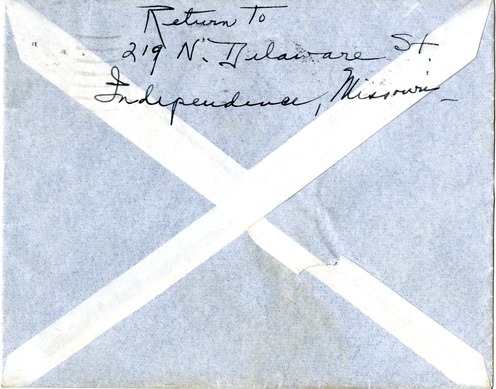 Return To
219 N. Delaware St
Independence, Missouri